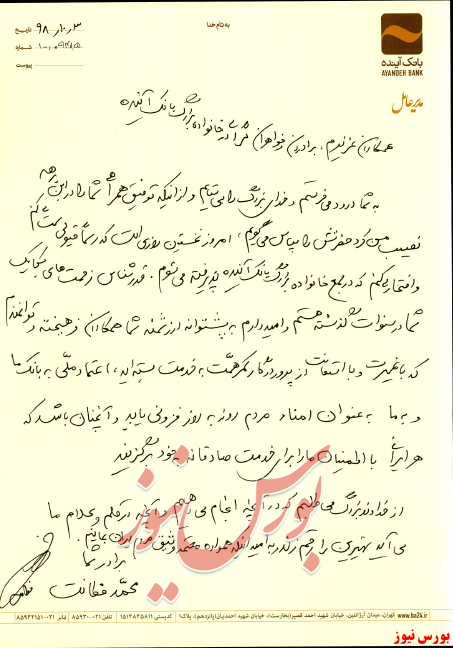 به نام خدا
تاریخ ۹۸٫۱۰٫۳
شماره
پیوست
بانک آینده
AYANDEH BANK
مدیرعامل
همکاران عزیزم، برادران و خواهران گرامی خانواده بزرگ بانک آینده
به شما درود می‌فرستم و خدای بزرگ را می‌ستایم و از اینکه توفیق همراهی شما را در این برهه
نصیب من کرد حضرتش را سپاس می‌گویم، امروز نخستین روزی است که رسماً قبول مسئولیت
و افتخار می‌کنم که در جمع خانواده بزرگ بانک آینده پذیرفته می‌شوم. قدرشناس زحمت‌های یکایک
شما در سنوات گذشته هستم و امیدوارم به پشتوانه ارزشمند شما همکاران فرهیخته و توانمندم
که با غیرت و با استعانت از پروردگار کمر همت به خدمت بسته‌اید، اعتماد ملی به بانک ما
و به ما به عنوان امناء مردم روز به روز فزونی یابد و آنچنان باشد که
هر ایرانی با اطمینان ما را برای خدمت صادقانه به خود برگزیند
از خداوند بزرگ می‌طلبم که در آنچه انجام می‌دهیم و آنچه در قلم و کلام ما
می‌آید بهترین را رقم زند به امید آنکه همواره معتمد و وثیق مردم ایران بمانیم.
برادر شما
محمد فطانت
بورس نیوز
www.ba24.ir تهران، میدان آرژانتین، خیابان شهید احمد قصیر (بخارست)، خیابان شهید احمدیان (پانزدهم)، پلاک ۱ کدپستی ۱۵۱۳۸۳۵۸۱۱ تلفن ۰۲۱-۸۵۹۳۰۰۰۰ نمابر ۰۲۱-۸۵۹۳۲۱۵۱
بورس نیوز